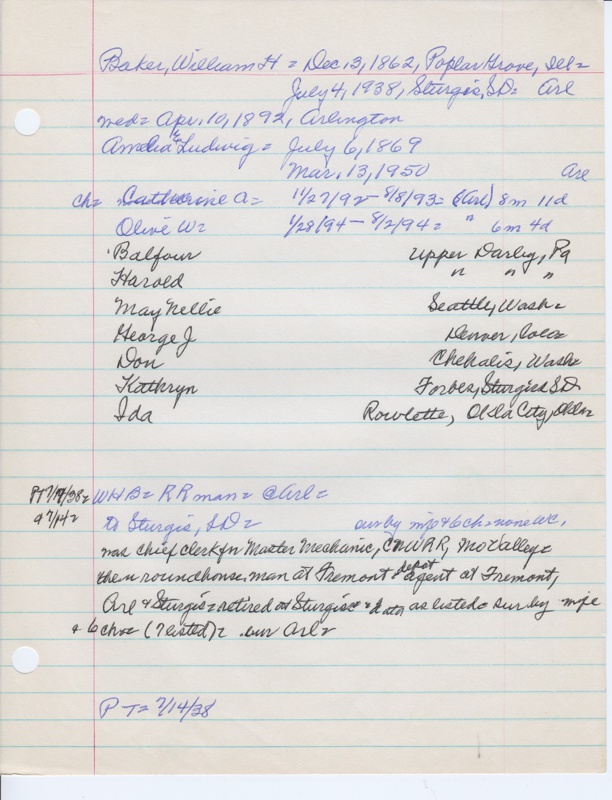 Baker, William H = Dec. 3, 1862, Poplar Grove, Ill =
July 4, 1938, Sturgis, SD = Arl
wed = Apr. 10, 1892, Arlington
Amelia Ludwig = July 6, 1869
Mar. 13, 1950 Arl
ch = Catherine A = 11/27/92 - 8/8/93 = (Arl) 8m 11d
Olive W = 1/28/94 - 8/2/94 = " 6m 4d
Balfour Upper Darby, Pa
Harold " " "
May Nellie Seattle, Wash =
George J Denver, Colo =
Don Chehalis, Wash =
Kathryn Forbes, Sturgis SD
Ida Rowlette, Okla City, Okla =
PT 7/14/38 = WHB = RR man = @ Arl =
97/14 =
to Sturgis, SD = sur by wife & 6 ch = none WC,
was chief clerk fn Master Mechanic, CNWRR, Mo Valley =
then roundhouse man at Fremont = depot agent at Fremont,
Arl & Sturgis = retired at Sturgis = as listed = sur by wife
& 6 ch = (7 listed) = bur Arl =
PT = 7/14/38